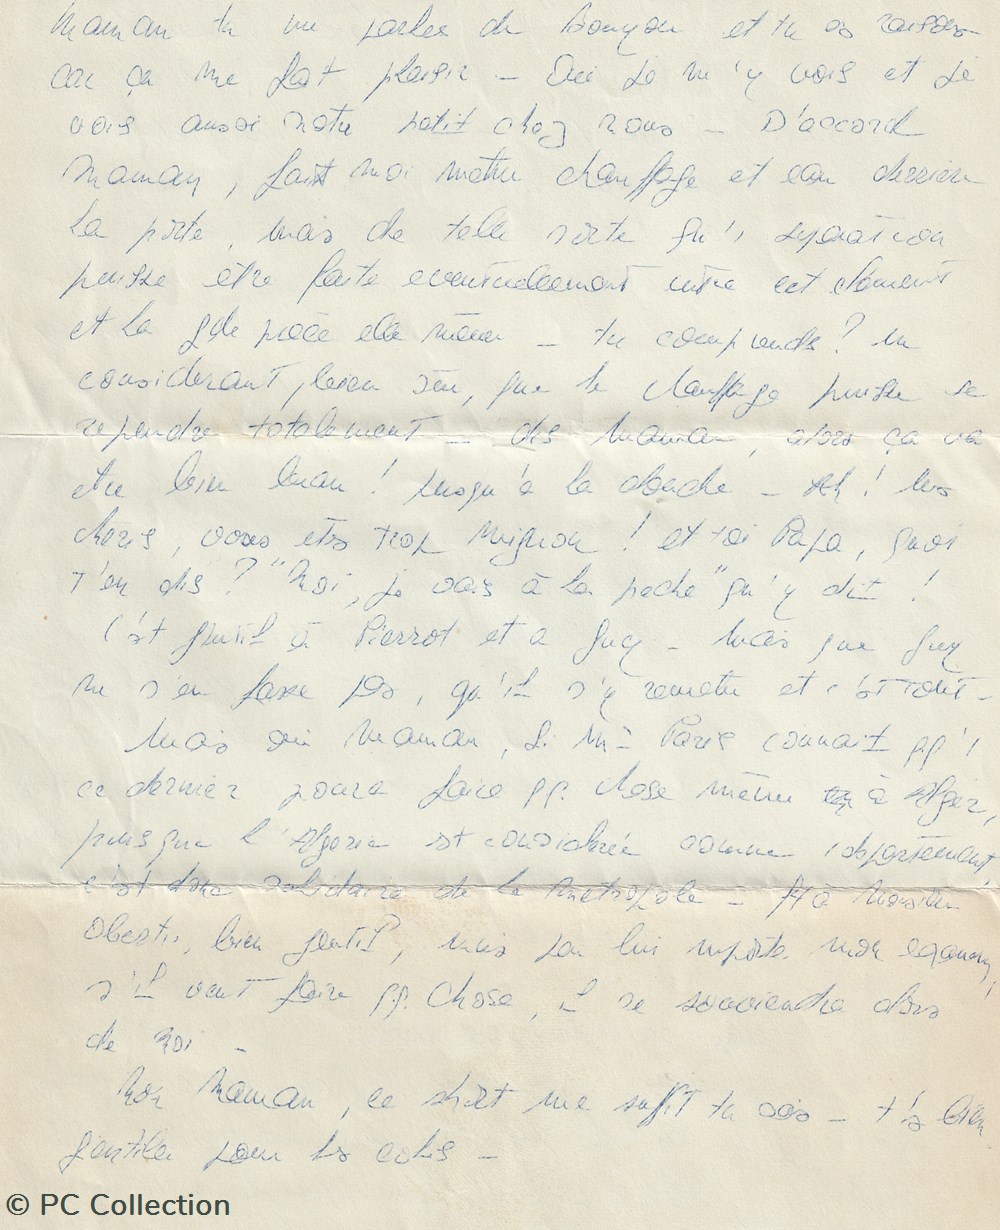 Maman tu me parles du Bouyou et tu as raison
car ça me fait plaisir - Oui je m'y vois et je
vois aussi notre petit chez nous - D'accord
Maman, fait moi mettre chauffage et eau derrière
la porte, mais de telle sorte qu'1 séparation
puisse être faite eventuellement entre cet élément
et la gde pièce elle même - tu comprends? en
considérant, bien sûr, que le chauffage puisse se
répendre totalement - dis Maman, alors ça va
être bien beau! jusqu'à la douche - Ah! mes
chéris, vous êtes trop mignon! et toi Papa, quoi
t'en dis? "Moi, je vais à la pêche" qu'y dit!
C'est gentil à Pierrot et a Guy - mais que Guy
ne s'en fasse pas, qu'il s'y remette et c'est tout -
Mais oui Maman, si Mr Paris connait qq'1
ce dernier pourra faire qq. chose même à Alger,
puisque l'Algérie est considérée comme 1 département,
c'est donc solidaire de la Métropole - Ha Monsieur
bien gentil, mais peu lui importe mon examen,
s'il veut faire qq. chose, il se souviendra alors
de moi -
Mon Maman, ce short me suffit tu sais - t'es bien
gentille pour les colis -
© PC Collection